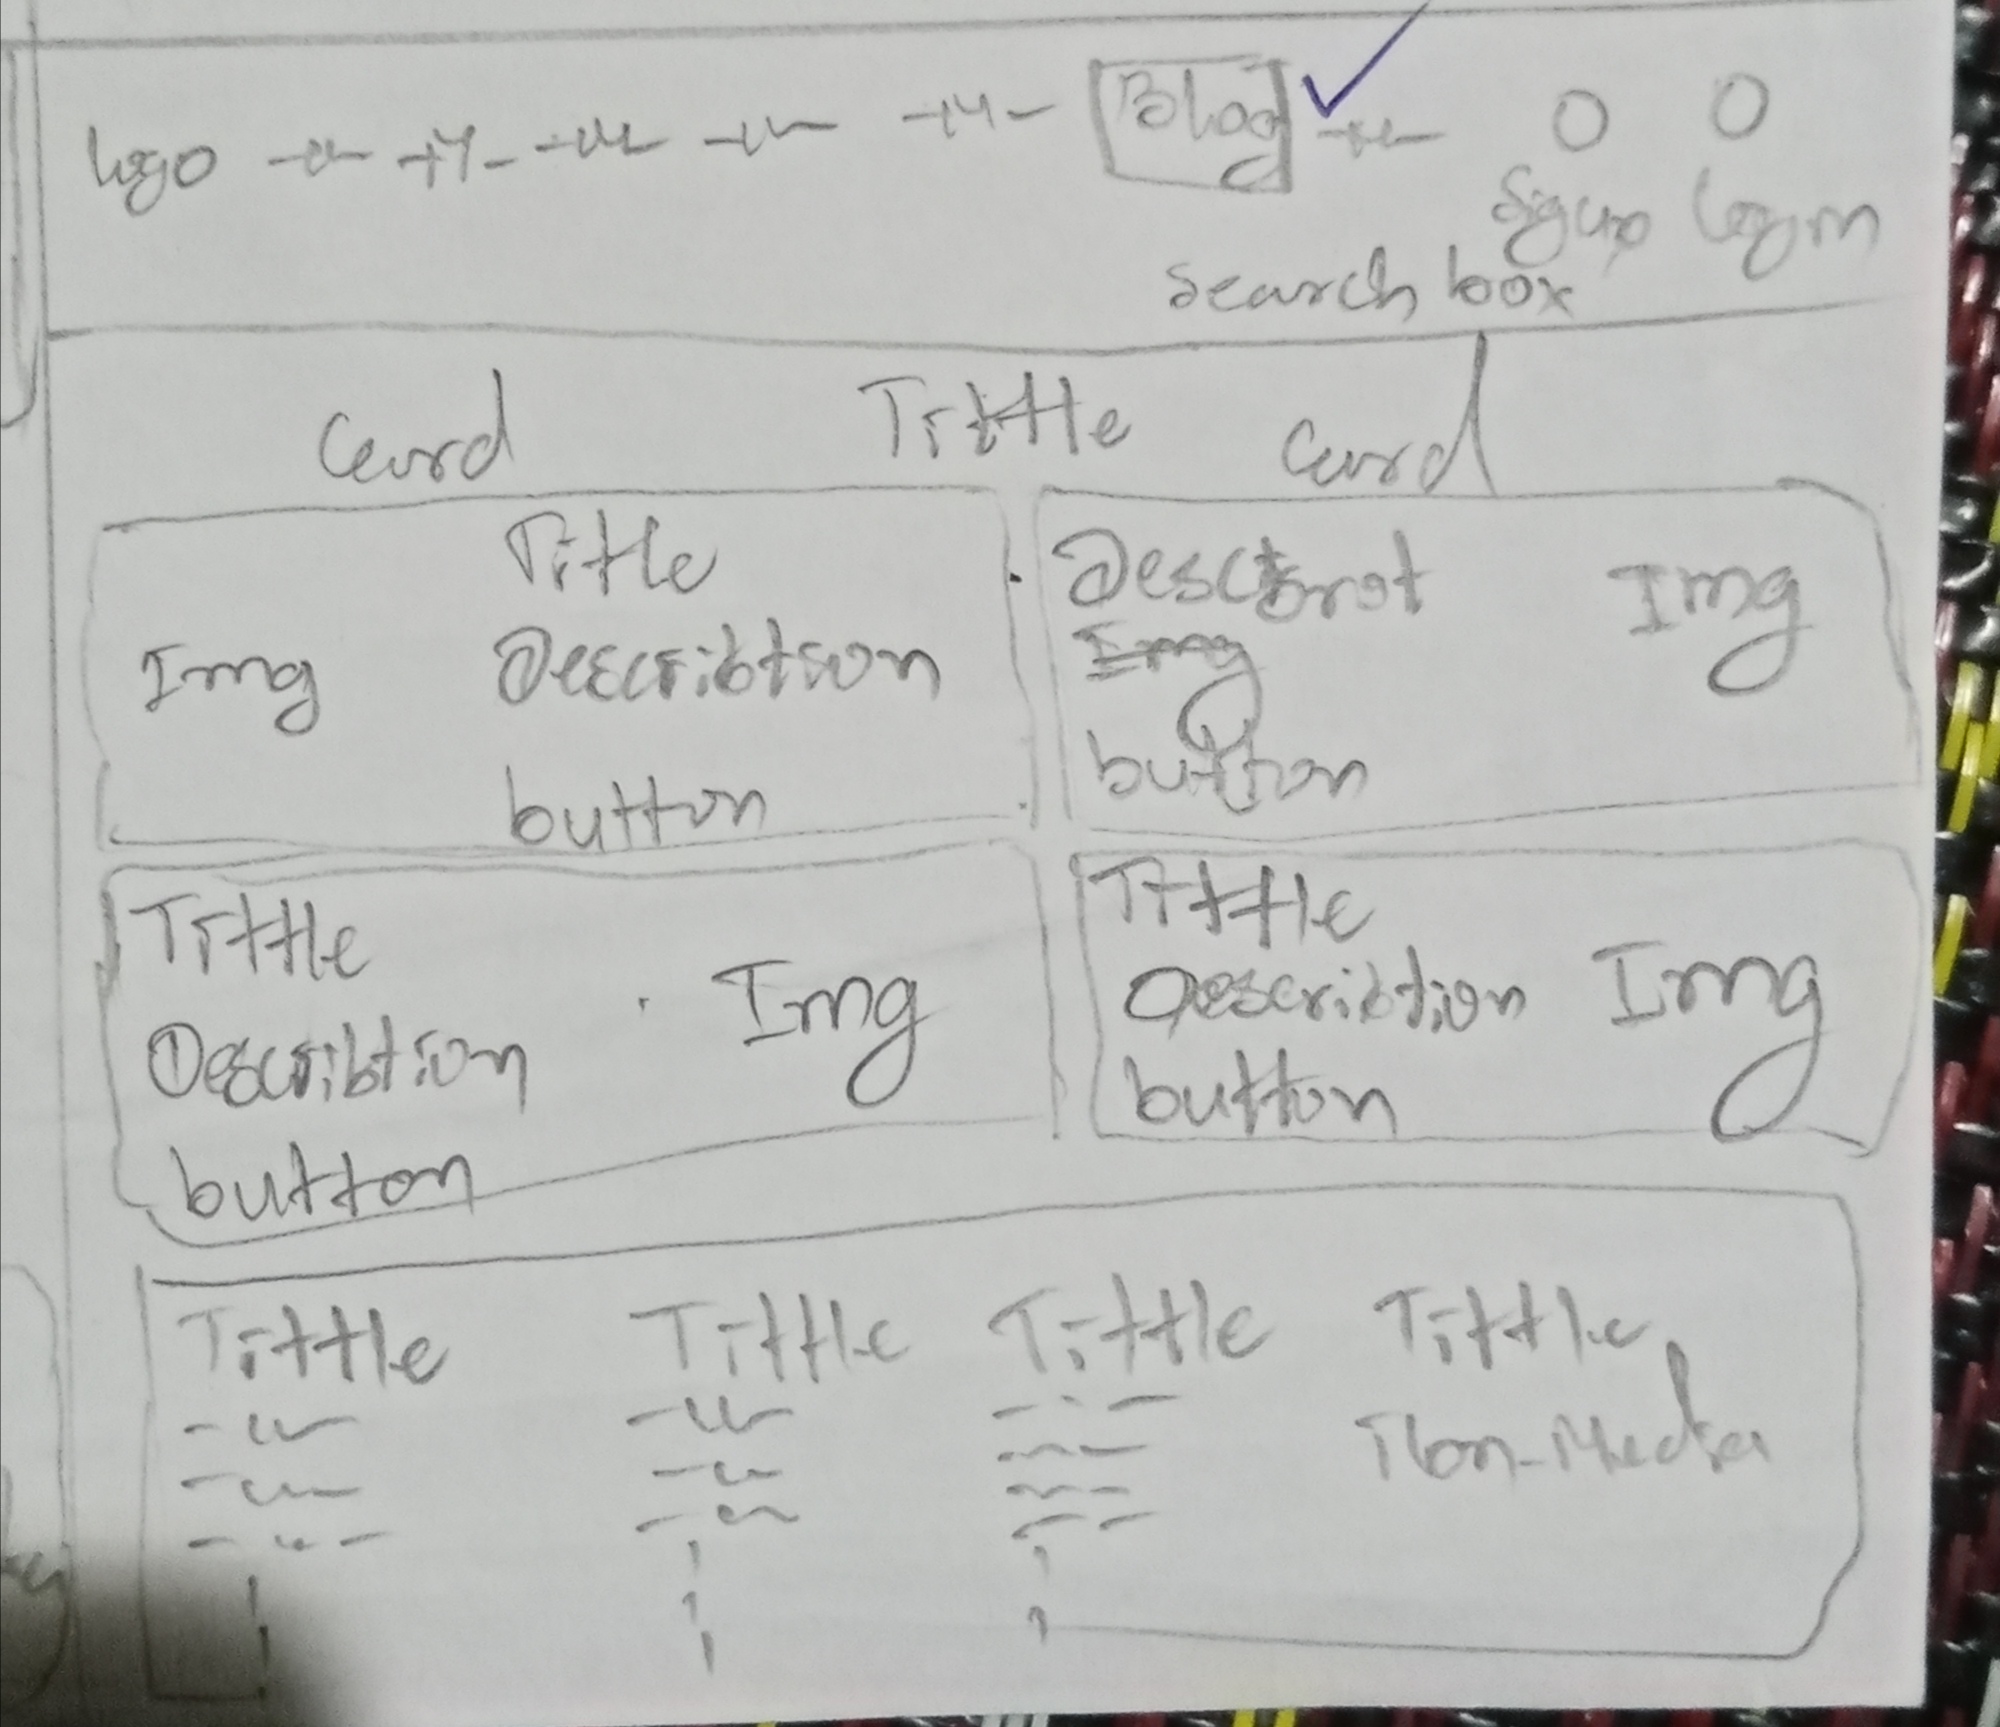 logo Blog
Signup login
Search box
Card Tittle Card
Title
Img Describtion
button
Img
Img
button
Tittle
Describtion Img
button
Tittle
Describtion Img
button
Tittle Tittle Tittle Tittle